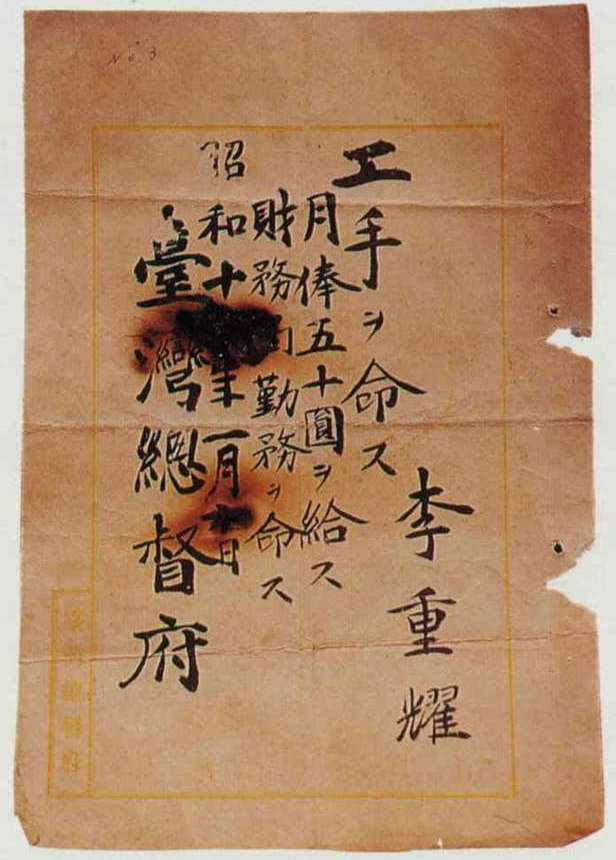 No. 3
李重耀
工手ヲ命ス
月俸五十圓ヲ給ス
財務局勤務ヲ命ス
昭和十年一月日
臺灣總督府
臺灣總督府